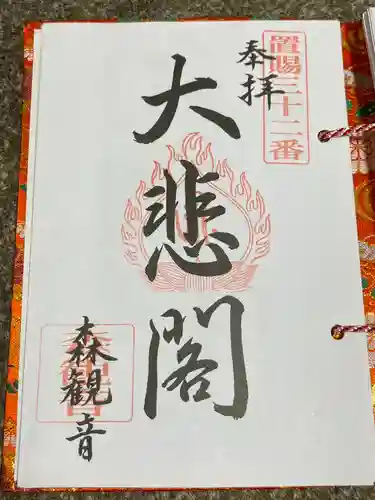 置賜三十二番
奉拝
大悲閣
森観音